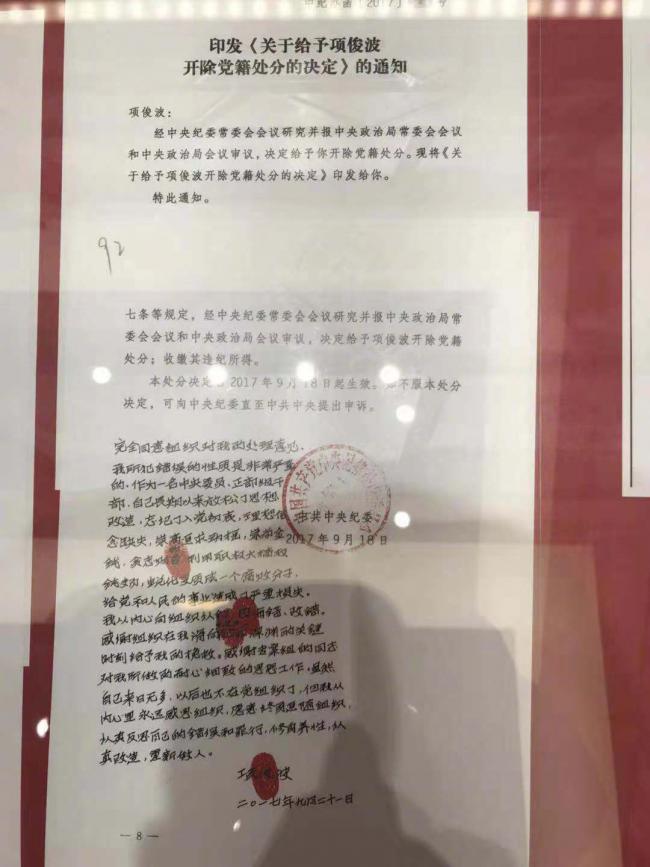 中纪 函〔2017〕 号
印发《关于给予项俊波
开除党籍处分的决定》的通知
项俊波：
经中央纪委常委会会议研究并报中央政治局常委会会议
和中央政治局会议审议，决定给予你开除党籍处分。现将《关
于给予项俊波开除党籍处分的决定》印发给你。
特此通知。
92
七条等规定，经中央纪委常委会会议研究并报中央政治局常
委会会议和中央政治局会议审议，决定给予项俊波开除党籍
处分；收缴其违纪所得。
本处分决定 2017年9月18日起生效。 不服本处分
决定，可向中央纪委直至中共中央提出申诉。
完全同意组织对我的处理意见。
我所犯错误的性质是非常严重
的，作为一名中央委员，正部级干
部，自己长期以来放松了思想
改造，忘记了入党初衷，理想信
念缺失，
中共中央纪委
2017年9月18日
钱， 利用职权大搞权
钱交易，蜕化变质成一个腐败分子，
给党和人民的事业造成了严重损失。
我从内心向组织认 错、改错。
感谢组织在我滑 深渊的关键
时刻给予我的挽救。感谢专案组的同志
对我所做的耐心细致的思想工作，虽然
自己来日无多，以后也不在党组织了，但我从
内心里永远感恩组织，愿意 追随组织，
认真反思自己的错误和罪行，修身养性，认
真改造，重新做人。
项俊波
二〇一七年九月二十一日
— 8 —